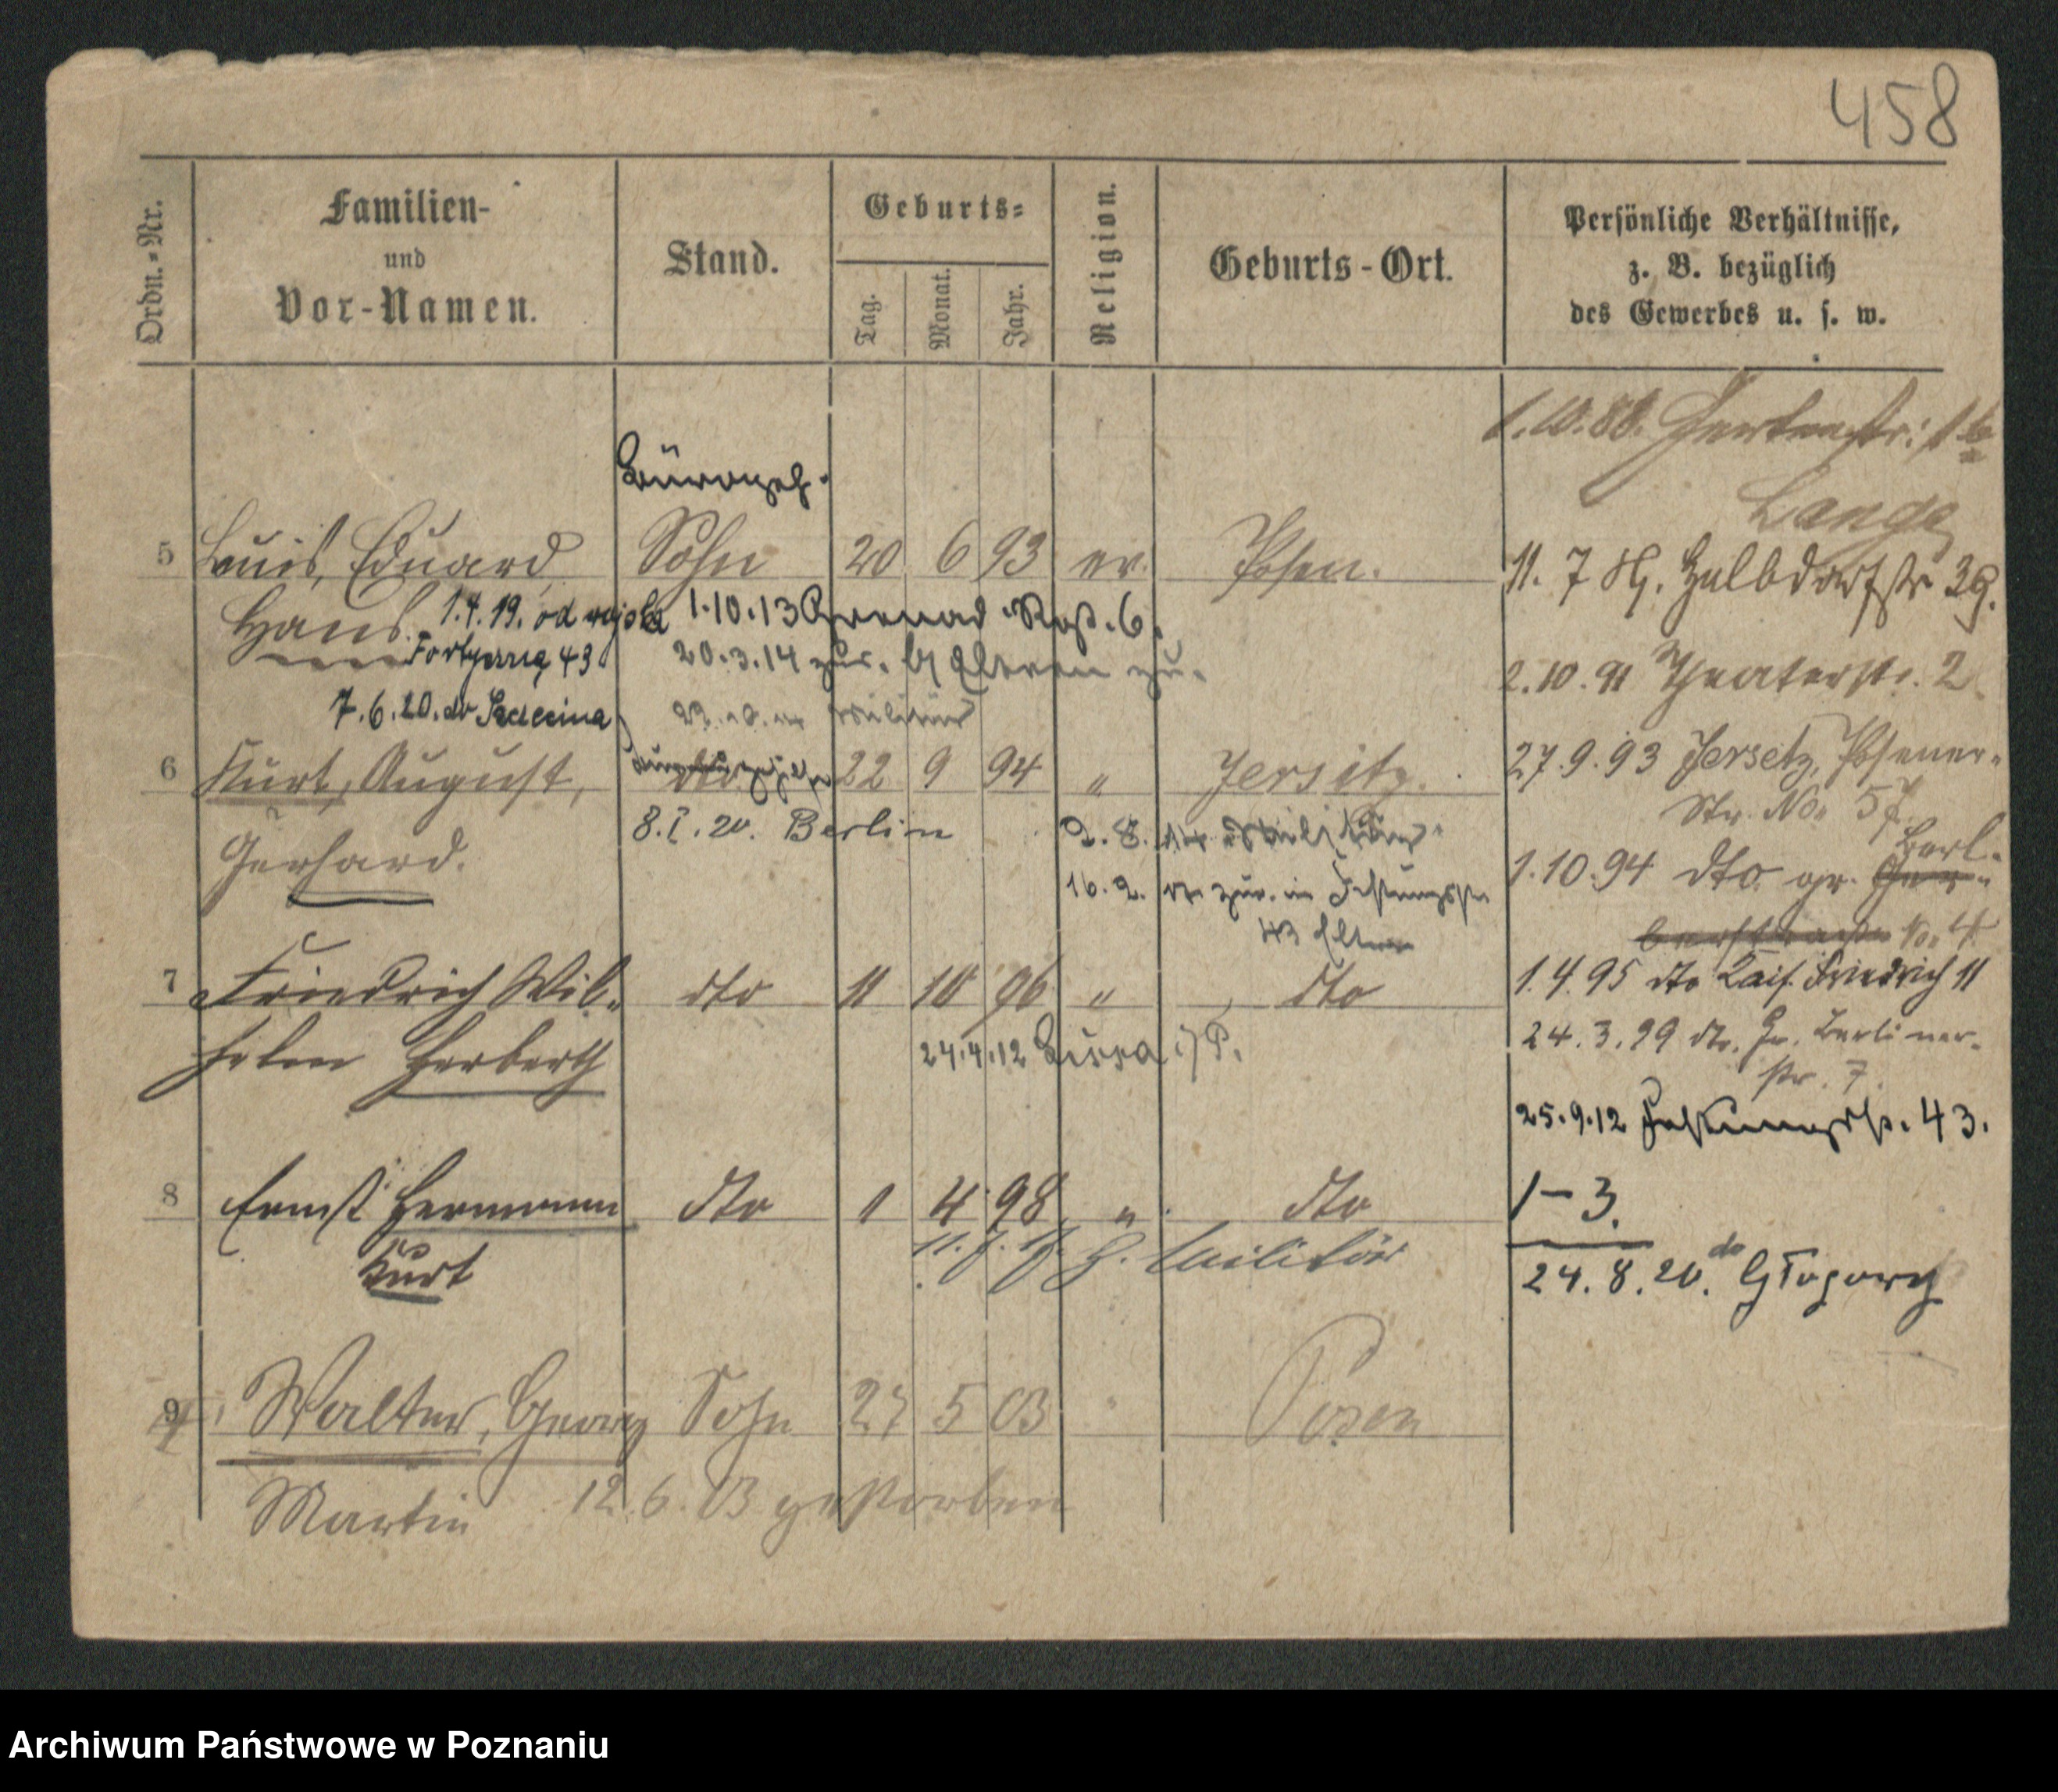 458
Ordn.-Nr.
Familien-
und
Vor-Namen.
Stand.
Geburts-
Tag.
Monat.
Jahr.
Religion.
Geburts-Ort.
Persönliche Verhältnisse,
z. B. bezüglich
des Gewerbes u. s. w.
1.10.88.
Bürogeh.
Lange
5 Louis, Eduard Sohn 20 6 93 ev. Posen.
11. 7 Halbdorfstr 39.
Hans. 1.4.19. od 1.10.13 Grenad. Rgt. 6.
Forteczna 43 20.3.14 zur. Eltern zu.
2.10.91 Theaterstr. 2
7.6.20. do Szczecina Militär
6 Kurt, August, dto. 22 9 94 " Jersitz.
27.9.93 Jersitz, Posener-
Str. No. 57.
8.I.20. Berlin 2.8.14 Militär
Gerhard.
Berl.
1.10.94 dto. gr.
16.2. zur. in Festungsstr
43 Eltern
No. 4.
7 Friedrich Wil- dto 11 10 96 " dto
1.4.95 dto Kais. Friedrich 11
helm Herberth 24.4.12 Lissa i/P.
24.3.99 dto. Gr. Berliner-
str. 7.
25.9.12 Festungsstr. 43.
8 Ernst Hermann dto 1 4 98 " dto
1-3.
Kurt Militär
24.8.20. do Głogowy
9 Walter, Georg Sohn 27 5 03 " Posen
Martin 12.6.03 gestorben
Archiwum Państwowe w Poznaniu